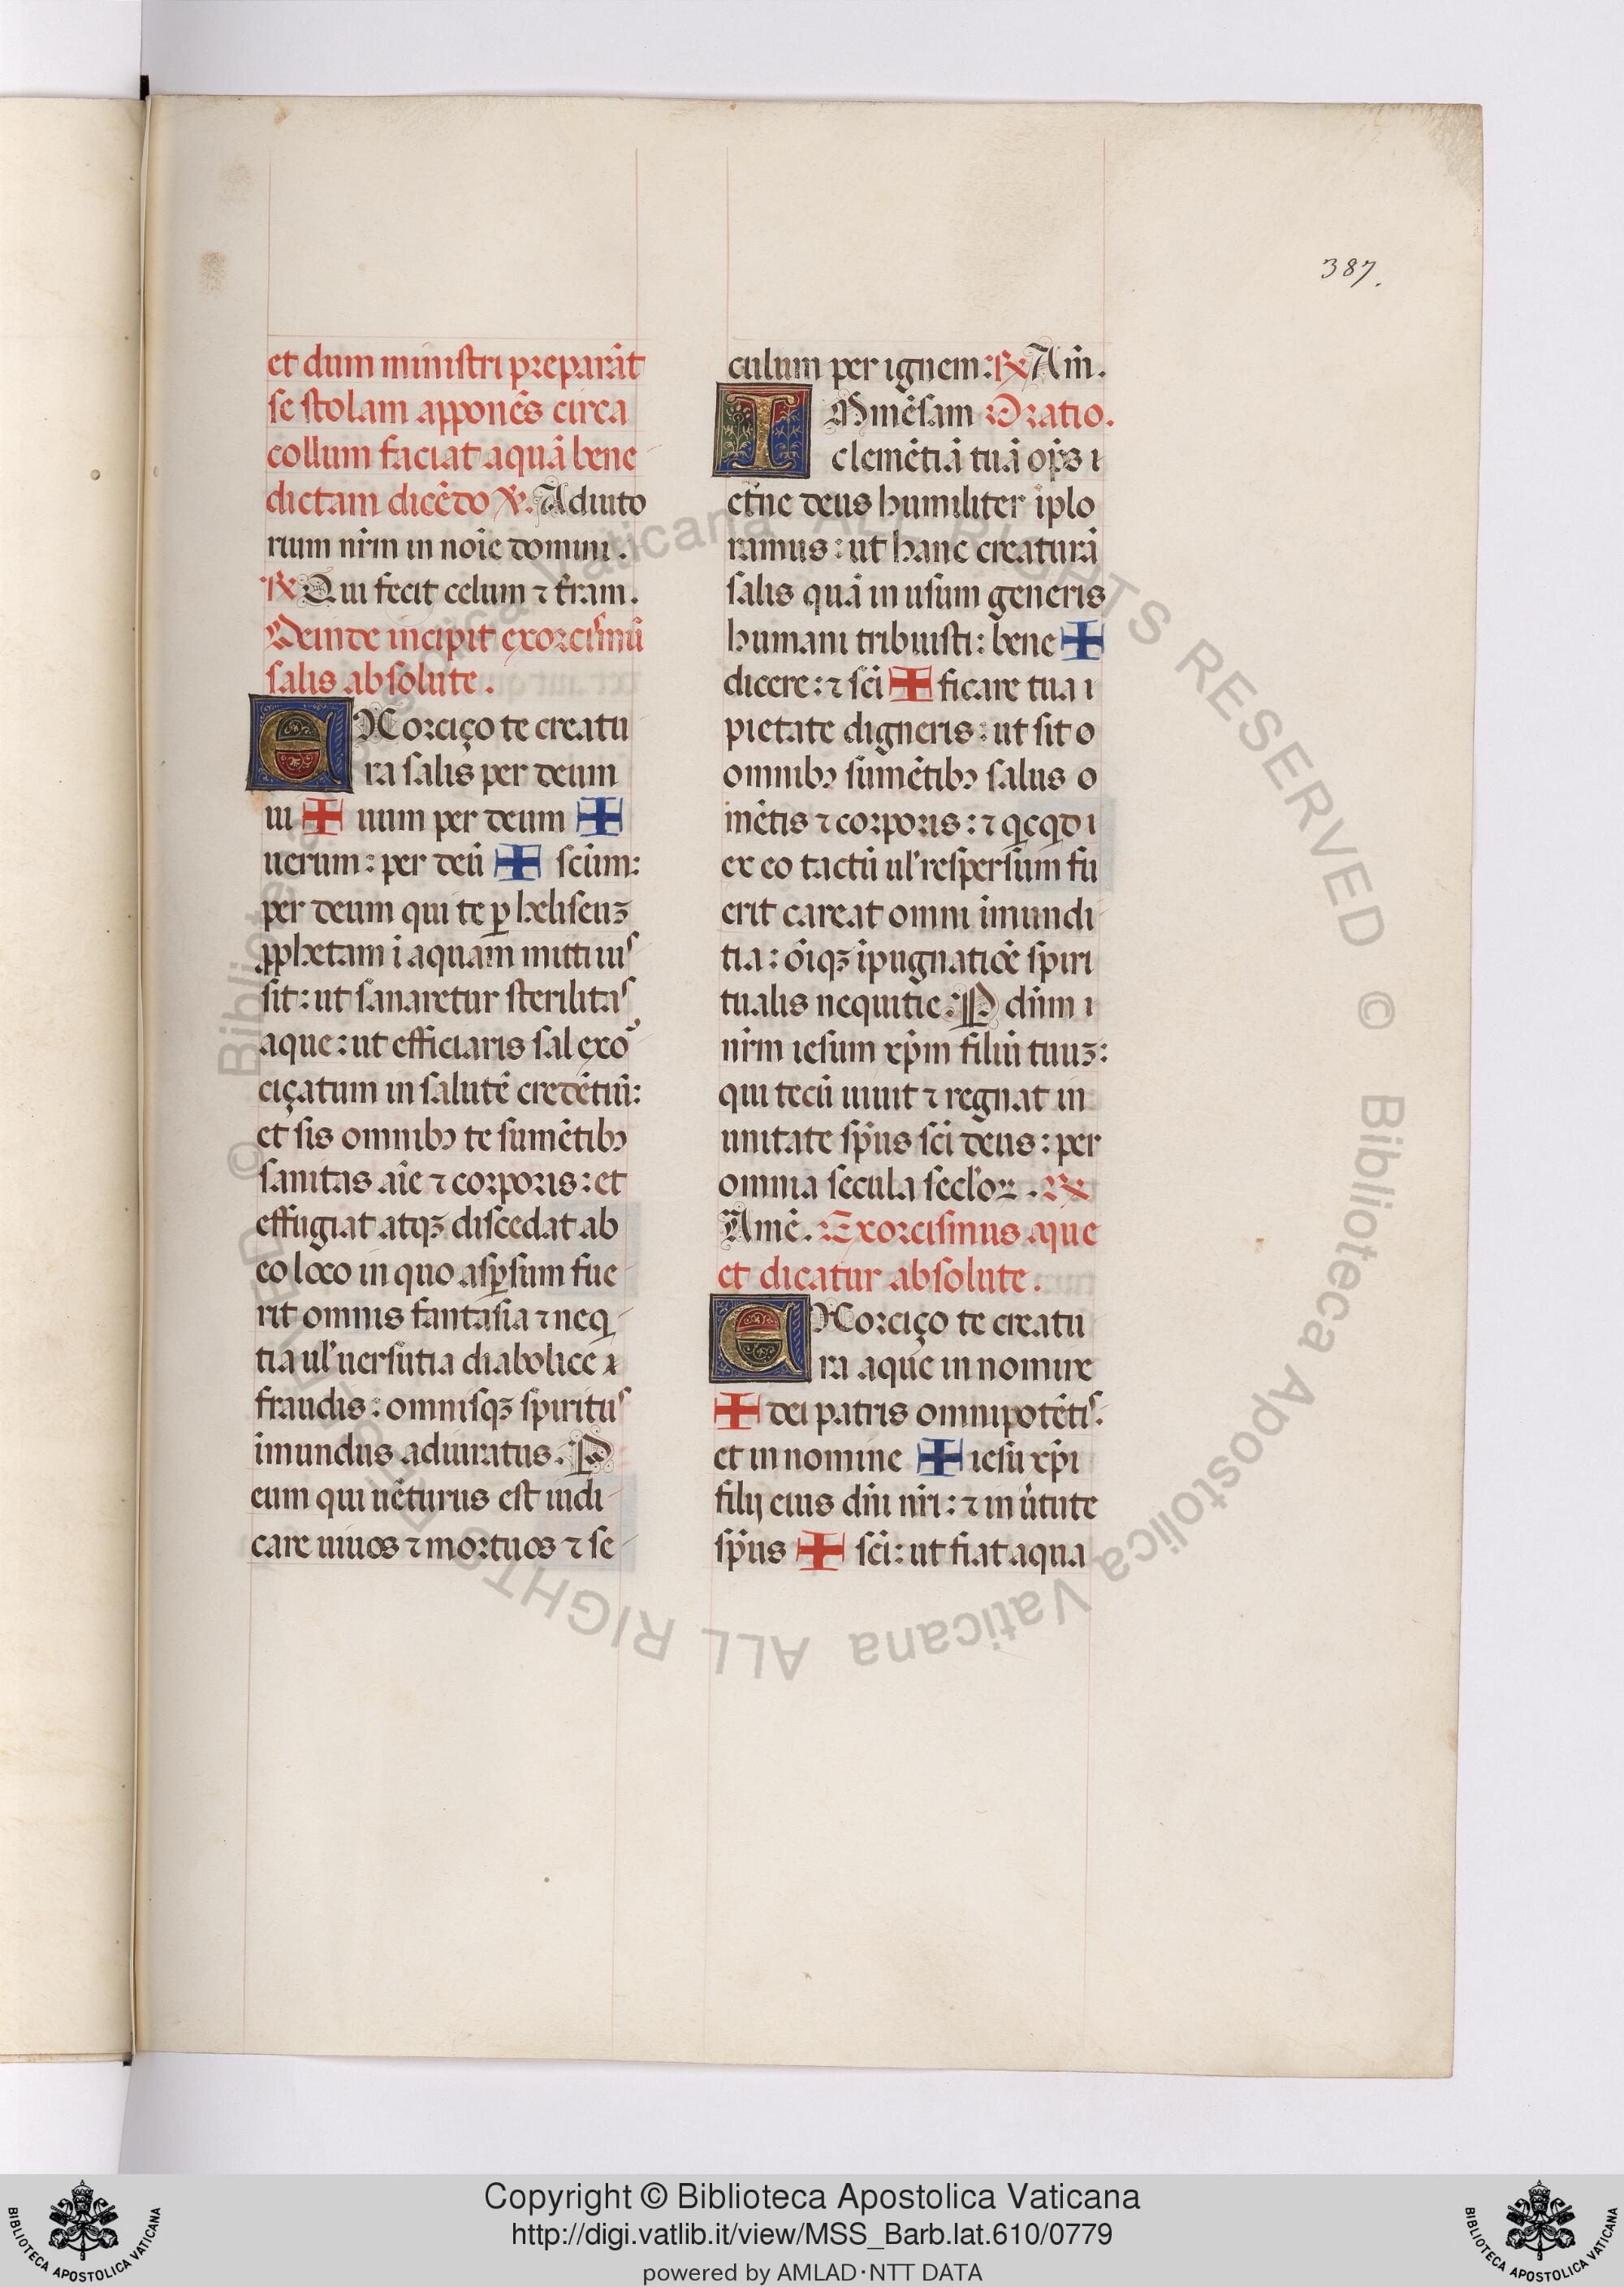 387.
et dum ministri preparāt
se stolam apponēs circa
collum faciat aquā bene
dictam dicēdo ℣. Adiuto
rium nr̄m in noīe domini.
℞ Qui fecit celum ⁊ t̄ram.
Deinde incipit exorcismū
salis absolute.
EXorciço te creatu
ra salis per deum
ui ✠ uum per deum ✠
uerum: per deū ✠ sc̄um:
per deum qui te ꝑ heliseuꝫ
ꝓphetam ī aquam mitti ius
sit: ut sanaretur sterilitas
aque: ut efficiaris sal exor
ciçatum in salutē credētiū:
et sis omnibꝫ te sumētibꝫ
sanitas aīe ⁊ corporis: et
effugiat atqꝫ discedat ab
eo loco in quo aspersum fue
rit omnis fantasia ⁊ neq
tia ul' uersutia diabolice
fraudis: omnisqꝫ spiritus
īmundus adiuratus. P
eum qui uēturus est iudi
care uiuos ⁊ mortuos ⁊ se
culum per ignem: ℞ Am̄.
IMmēsam Oratio.
clemētiā tuā op̄s
et̄ne deus humiliter īplo
ramus: ut hanc creaturā
salis quā in usum generis
humani tribuisti: bene ✠
dicere: ⁊ sc̄i ✠ ficare tua
pietate digneris: ut sit o
omnibꝫ sumētibꝫ salus
mētis ⁊ corporis: ⁊ qͥcqͥd
ex eo tactū ul' respersum fu
erit careat omni īmundi
tia: ōiqꝫ īpugnatiōe spiri
tualis nequitie. P dn̄m
nr̄m iesum xp̄m filiū tuuꝫ:
qui tecū uiuit ⁊ regnat in
unitate sp̄us sc̄i deus: per
omnia secula secl'oꝝ. ℞
Amē. Exorcismus aque
et dicatur absolute.
EXorciço te creatu
ra aque in nomine
✠ dei patris omnipotētis.
et in nomine ✠ iesu xp̄i
filij eius dn̄i nr̄i: ⁊ in ūtute
sp̄us ✠ sc̄i: ut fiat aqua
© Biblioteca Apostolica Vaticana ALL RIGHTS RESERVED © Biblioteca Apostolica Vaticana ALL RIGHTS RESERVED
Copyright © Biblioteca Apostolica Vaticana
http://digi.vatlib.it/view/MSS_Barb.lat.610/0779
powered by AMLAD·NTT DATA
BIBLIOTECA APOSTOLICA VATICANA
BIBLIOTECA APOSTOLICA VATICANA